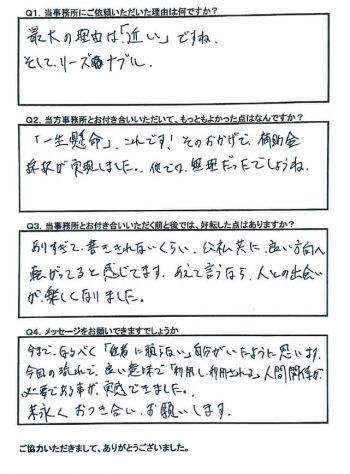 Q1. 当事務所にご依頼いただいた理由は何ですか？
最大の理由は「近い」ですね。
そして、リーズナブル。
Q2. 当方事務所とお付き合いいただいて、もっともよかった点はなんですか？
「一生懸命」、これです！そのおかげで、補助金
採択が実現しました。他では、無理だったでしょうね。
Q3. 当事務所とお付き合いいただく前と後では、好転した点はありますか？
ありすぎて、書ききれないくらい、公私共に、良い方向へ
転がってると感じてます。あえて言うなら、人との出会い
が、楽しくなりました。
Q4. メッセージをお願いできますでしょうか
今まで、なるべく「他者に頼らない」自分がいたように思います。
今回の流れで、良い意味で「利用し利用される」人間関係が
必要である事が、実感できました。
末永く、おつき合い、お願いします。
ご協力いただきまして、ありがとうございました。